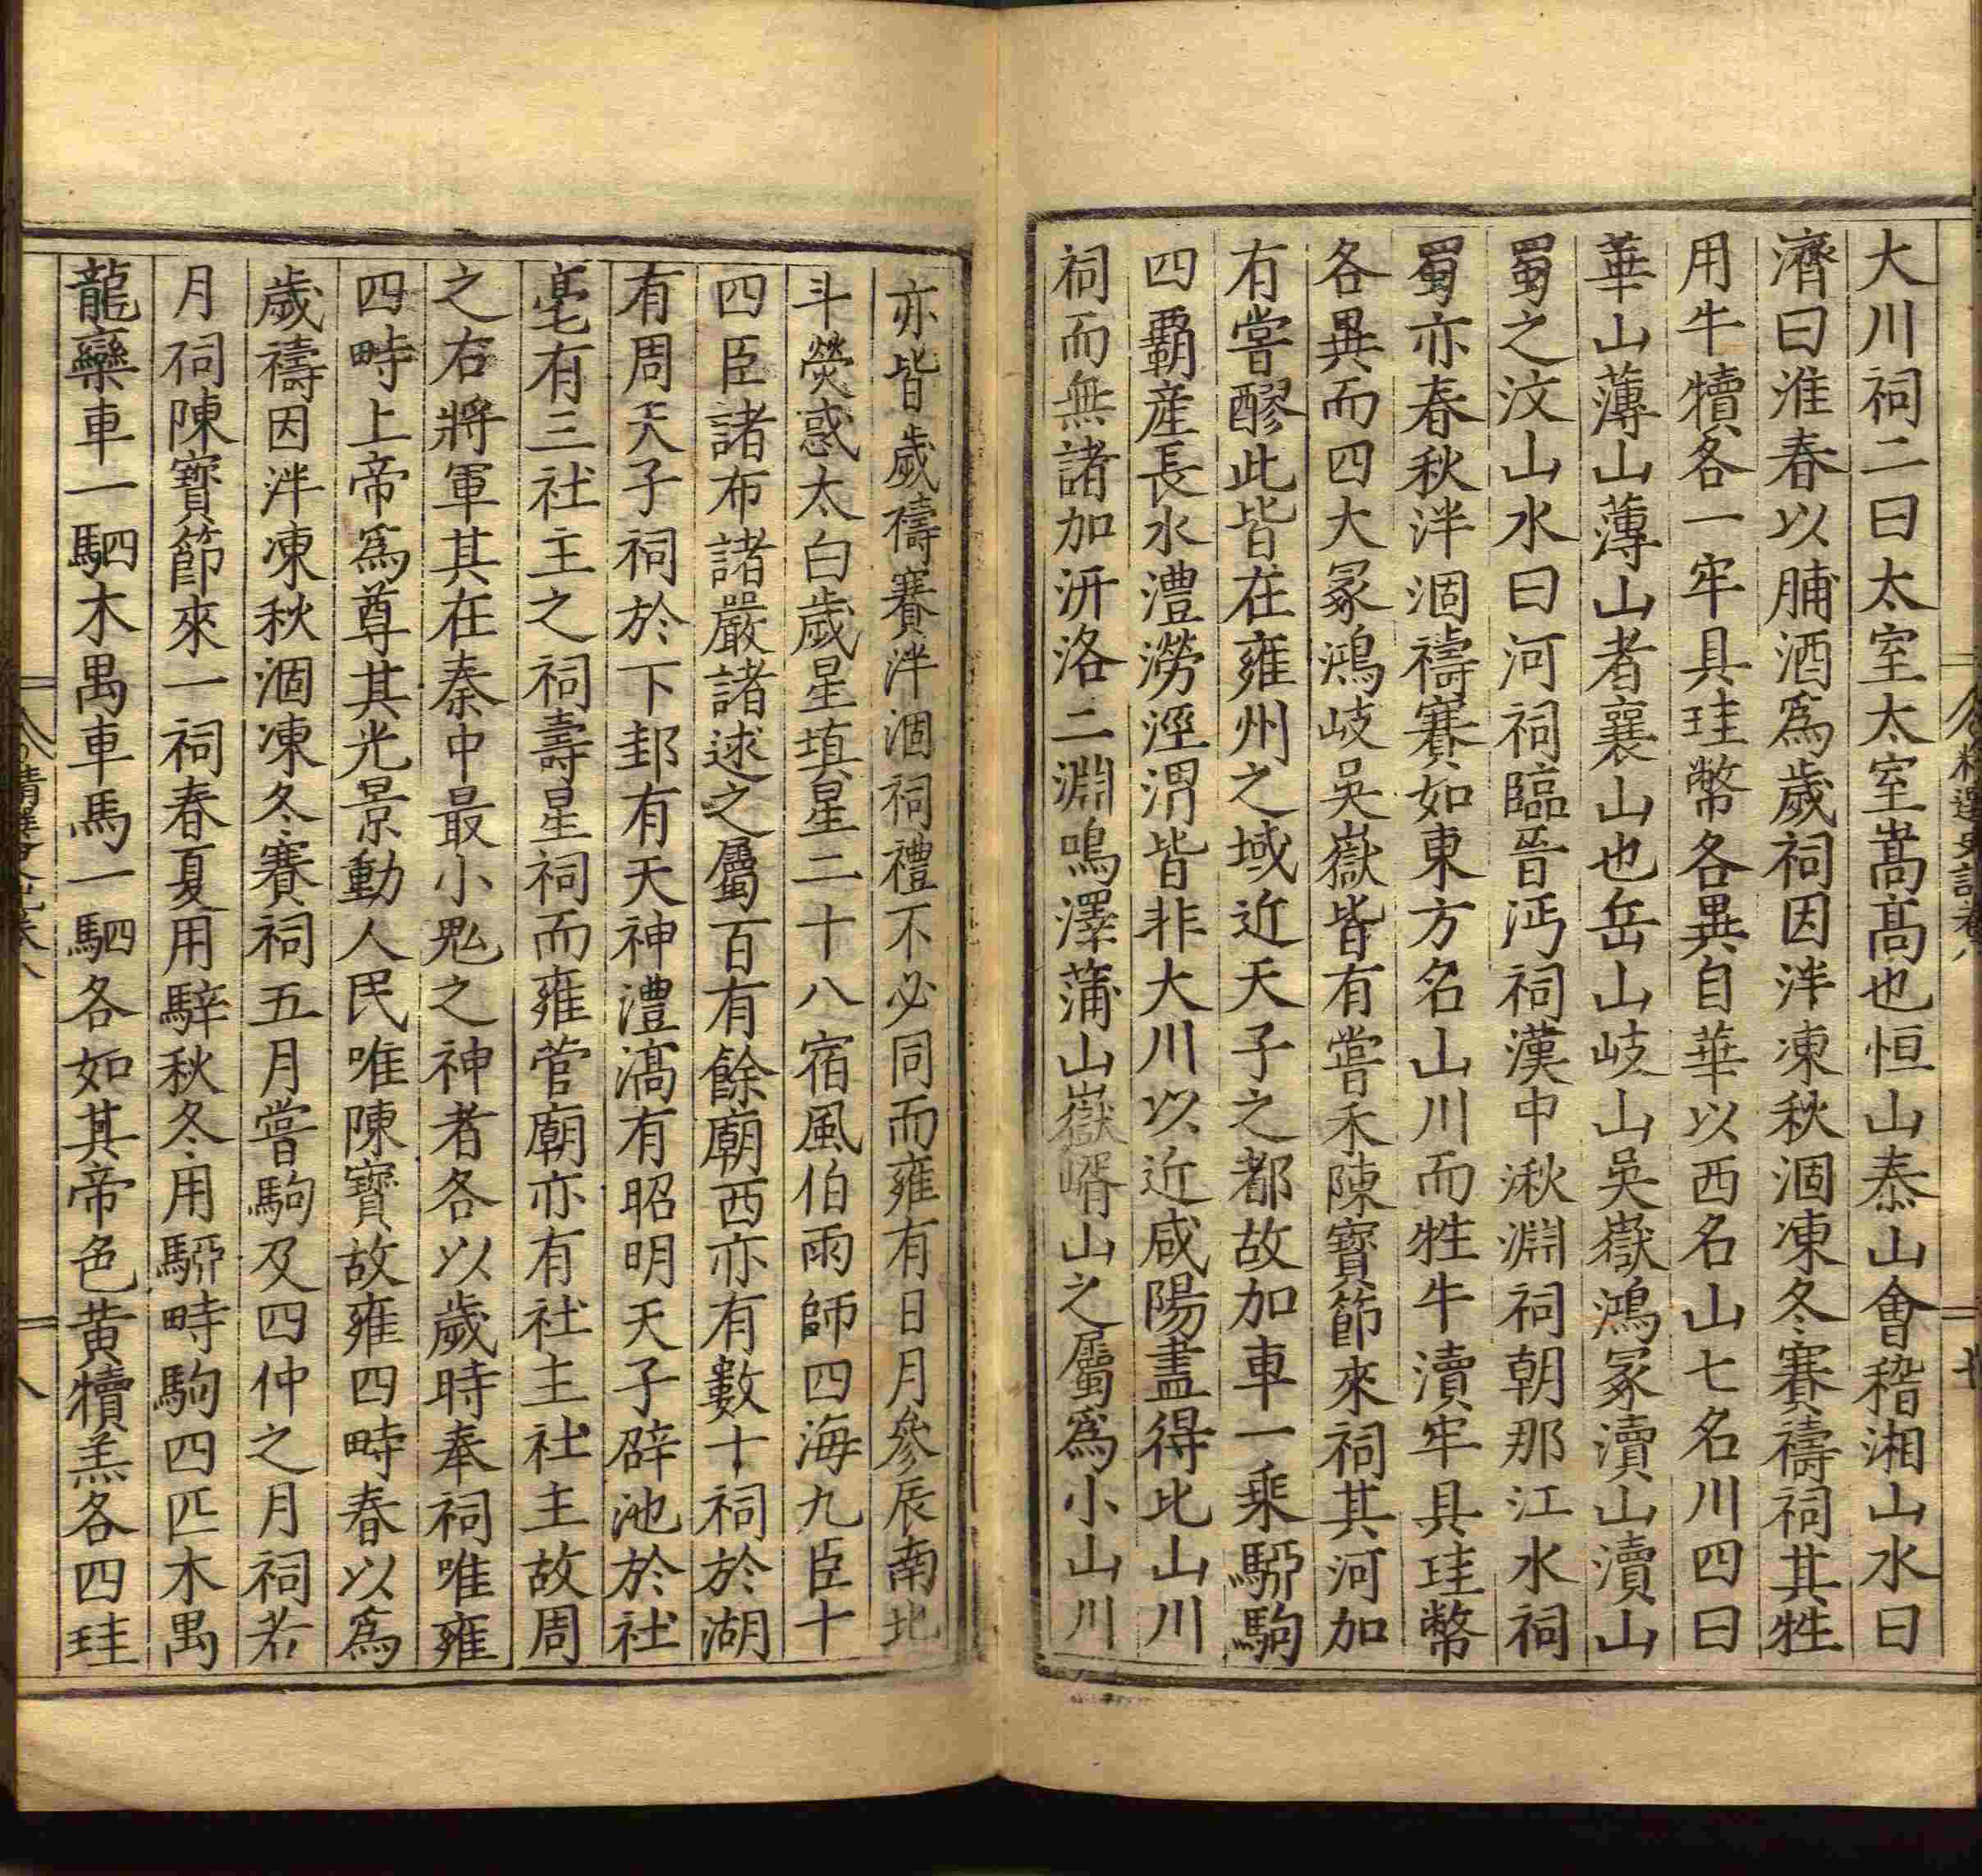 大川祠二曰太室太室嵩高也恒山泰山會稽湘山水曰
濟曰淮春以脯酒爲歲祠因泮凍秋涸凍冬賽禱祠其牲
用牛犢各一牢具珪幣各異自華以西名山七名川四曰
華山薄山薄山者襄山也岳山岐山吳嶽鴻冢瀆山瀆山
蜀之汶山水曰河祠臨晉沔祠漢中湫淵祠朝那江水祠
蜀亦春秋泮涸禱賽如東方名山川而牲牛瀆牢具珪幣
各異而四大冢鴻岐吳嶽皆有嘗禾陳寶節來祠其河加
有嘗醪此皆在雍州之域近天子之都故加車一乗駵駒
四霸產長水澧澇涇渭皆非大川以近咸陽盡得比山川
祠而無諸加汧洛二淵鳴澤蒲山嶽㟯山之屬爲小山川
亦皆歲禱賽泮涸祠禮不必同而雍有日月參辰南北
斗熒惑太白歲星填星二十八宿風伯雨師四海九臣十
四臣諸布諸嚴諸逑之屬百有餘廟西亦有數十祠於湖
有周天子祠於下邽有天神澧滈有昭明天子辟池於社
亳有三社主之祠壽星祠而雍菅廟亦有社主社主故周
之右將軍其在秦中最小鬼之神者各以歲時奉祠唯雍
四畤上帝爲尊其光景動人民唯陳寶故雍四畤春以爲
歲禱因泮凍秋涸凍冬賽祠五月嘗駒及四仲之月祠若
月祠陳寶節來一祠春夏用騂秋冬用駵畤駒四匹木禺
龍欒車一駟木禺車馬一駟各如其帝色黃犢羔各四珪